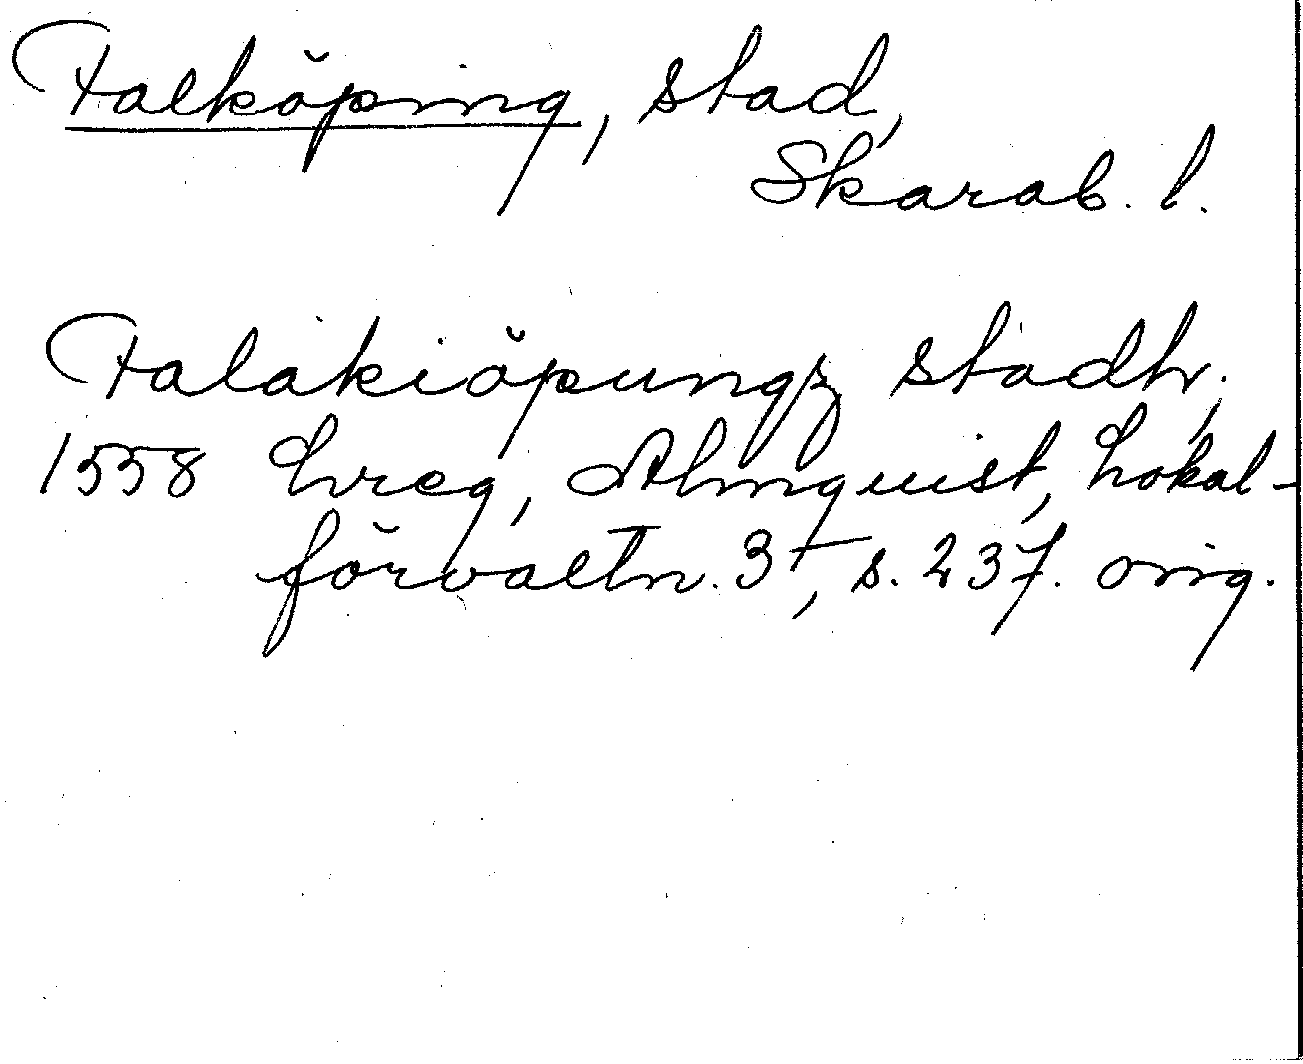 Falköping, stad,
Skarab. l.
Falakiöpungz stadh,
1558 Lvreg, Almquist, Lokal-
förvaltn. 3⁴, s. 237. orig.